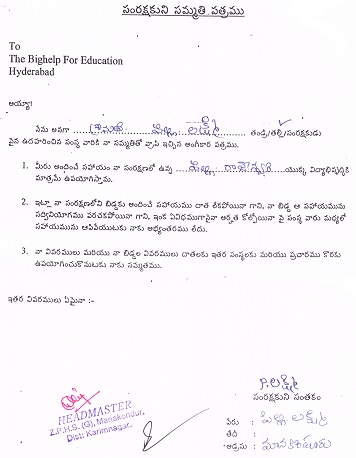 సంరక్షకుని సమ్మతి పత్రము
To
The Bighelp For Education
Hyderabad
అయ్యా!
నేను అనగా శ్రీమతి పిల్లి లక్ష్మి తండ్రి/తల్లి/సంరక్షకుడు
పైన ఉదహరించిన సంస్థ వారికి నా సమ్మతితో వ్రాసి ఇచ్చిన అంగీకార పత్రము.
1. మీరు అందించే సహాయం నా సంరక్షణలో ఉన్న పిల్లి యొక్క విద్యాభివృద్ధికి
మాత్రమే ఉపయోగిస్తాను.
2. ఇట్లా నా సంరక్షణలోని బిడ్డకు అందించే సహాయము దాత లేకపోయినా గాని, నా బిడ్డ ఆ సహాయమును
సద్వినియోగము పరచకపోయినా గాని, ఇంక ఏవిధముగానైనా అర్హత కోల్పోయినా పై సంస్థ వారు మధ్యలో
సహాయమును ఆపివేయుటకు నాకు అభ్యంతరము లేదు.
3. నా వివరములు మరియు నా బిడ్డల వివరములు దాతలకు ఇతర సంస్థలకు మరియు ప్రచారము కొరకు
ఉపయోగించుకొనుటకు నాకు సమ్మతము.
ఇతర వివరములు ఏమైనా :-
P. లక్ష్మి
సంరక్షకుని సంతకం
HEADMASTER
Z.P.H.S. (G), Manakondur,
Dist: Karimnagar.
పేరు : పిల్లి లక్ష్మి
తేదీ :
అడ్రసు : మానకొండూరు